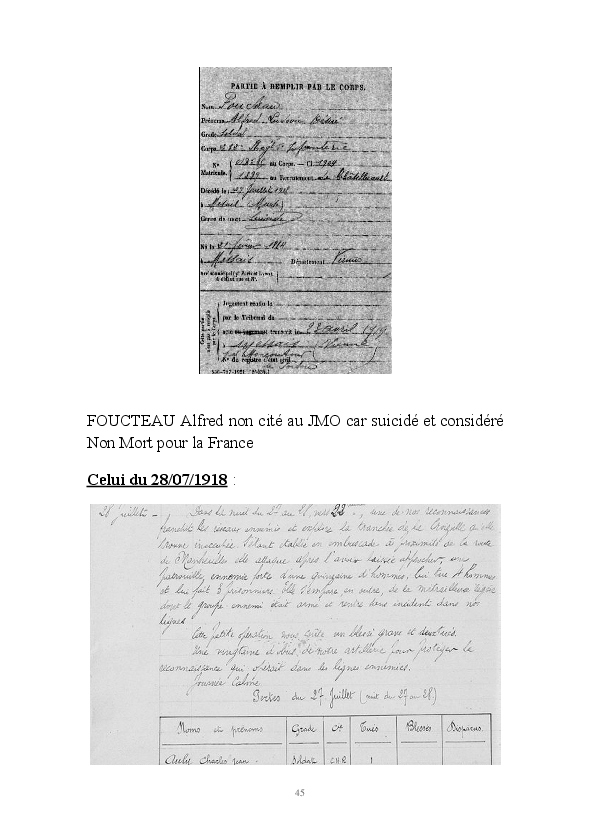 PARTIE À REMPLIR PAR LE CORPS.
Nom
Prénoms Alfred
Grade Soldat
Corps Infanterie
N° au Corps. — Cl. 1904
Matricule. au Recrutement Châtellerault
Décédé le 27 Juillet 1918
à
Genre de mort Suicide
Né le
à Département Vienne
Jugement rendu le
par le Tribunal de
transcrit le 28 avril 1919
N° du registre d'état civil
FOUCTEAU Alfred non cité au JMO car suicidé et considéré
Non Mort pour la France
Celui du 28/07/1918 :
28 Juillet - Dans la nuit du 27 au 28, vers 22 , une de nos reconnaissances
franchit les réseaux ennemis et explore la tranchée de la qu'elle
trouve inoccupée. S'étant établie en embuscade à proximité de la route
de elle attaque après l'avoir laissée approcher, une
patrouille ennemie forte d'une quinzaine d'hommes, lui tue 4 hommes
et lui fait 3 prisonniers. Elle s'empare en outre, de la mitrailleuse légère
dont le groupe ennemi était armé et rentre sans incident dans nos
lignes
Cette petite opération nous coûte un blessé grave et deux tués.
Une vingtaine d'obus de notre artillerie pour protéger la
reconnaissance qui opérait dans les lignes ennemies.
Journée Calme
Pertes du 27 Juillet (nuit du 27 au 28)
Noms et prénoms Grade Cie Tués Blessés Disparus
Charles Jean - Soldat 1
45